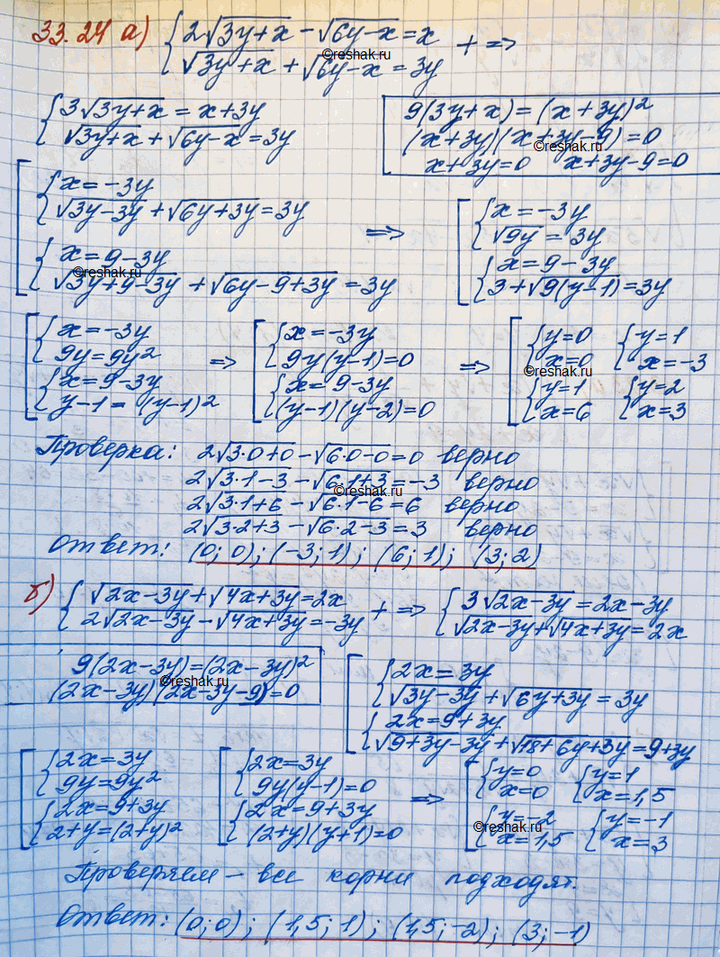 33.24 а) {2√(3y+x) − √(6y−x) = x
{√(3y+x) + √(6y−x) = 3y + ⇒
©reshak.ru
{3√(3y+x) = x+3y
{√(3y+x) + √(6y−x) = 3y
9(3y+x) = (x+3y)²
(x+3y)(x+3y−9) = 0
©reshak.ru
x+3y=0 x+3y−9=0
[{x=−3y
{√(3y−3y) + √(6y+3y) = 3y
{x=9−3y
©reshak.ru
{√(3y+9−3y) + √(6y−9+3y) = 3y
⇒ [{x=−3y
{√(9y) = 3y
{x=9−3y
{3+√(9(y−1)) = 3y
[{x=−3y
{9y=9y²
{x=9−3y
{y−1=(y−1)²
⇒ [{x=−3y
{9y(y−1)=0
{x=9−3y
{(y−1)(y−2)=0
⇒ [{y=0 {y=1
{x=0 {x=−3
©reshak.ru
{y=1 {y=2
{x=6 {x=3
Проверка: 2√(3·0+0) − √(6·0−0) = 0 верно
2√(3·1−3) − √(6·1+3) = −3 верно
©reshak.ru
2√(3·1+6) − √(6·1−6) = 6 верно
2√(3·2+3) − √(6·2−3) = 3 верно
Ответ: (0; 0); (−3; 1); (6; 1); (3; 2)
б) {√(2x−3y) + √(4x+3y) = 2x
{2√(2x−3y) − √(4x+3y) = −3y + ⇒
{3√(2x−3y) = 2x−3y
{√(2x−3y) + √(4x+3y) = 2x
9(2x−3y) = (2x−3y)²
(2x−3y)(2x−3y−9) = 0
©reshak.ru
[{2x=3y
{√(3y−3y) + √(6y+3y) = 3y
{2x=9+3y
{√(9+3y−3y) + √(18+6y+3y) = 9+3y
[{2x=3y
{9y=9y²
{2x=9+3y
{2+y=(2+y)²
[{2x=3y
{9y(y−1)=0
{2x=9+3y
{(2+y)(y+1)=0
⇒ [{y=0 {y=1
{x=0 {x=1,5
{y=−2 {y=−1
©reshak.ru
{x=1,5 {x=3
Проверяем – все корни подходят.
Ответ: (0; 0); (1,5; 1); (1,5; −2); (3; −1)